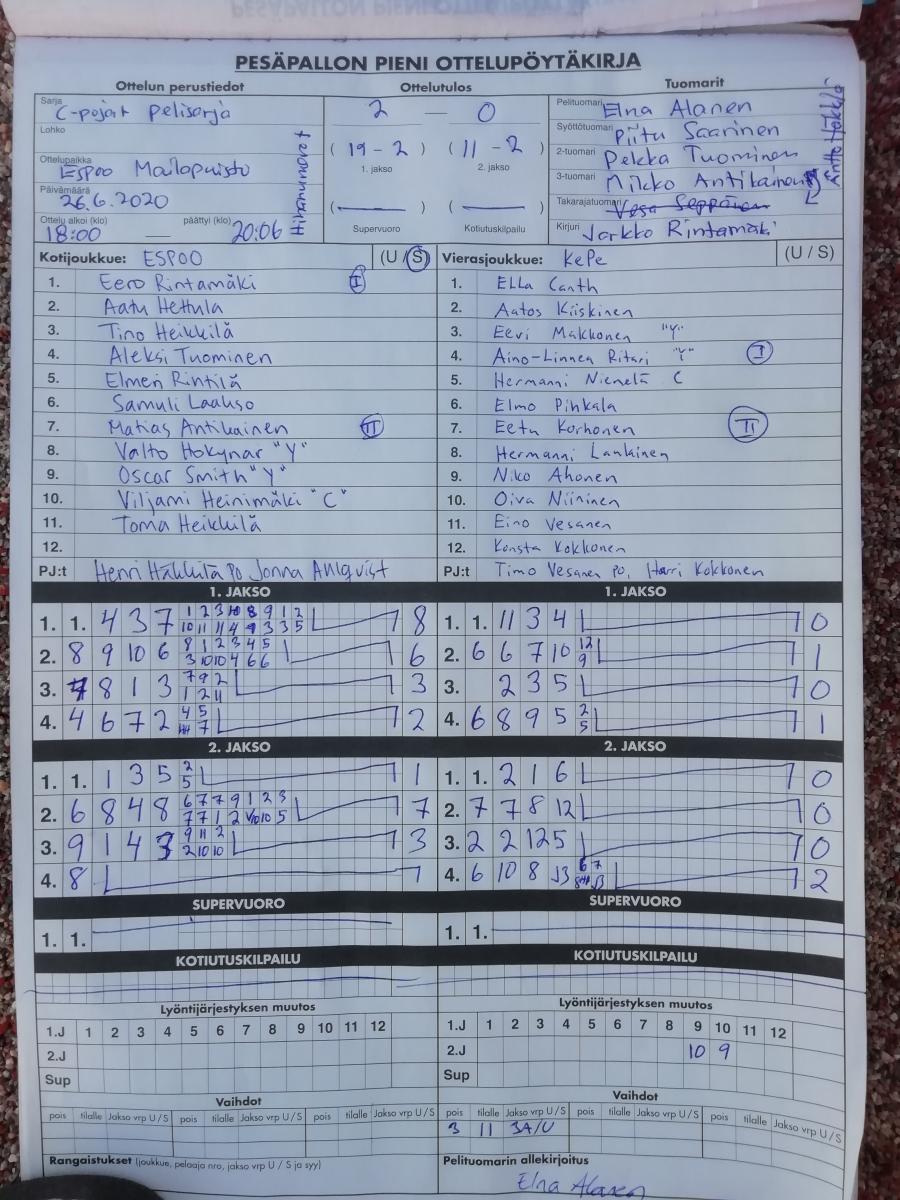 PESÄPALLON PIENI OTTELUPÖYTÄKIRJA
Ottelun perustiedot Ottelutulos Tuomarit
Sarja C-pojat pelisarja
Lohko
Ottelupaikka Espoo Mailapuisto
Päivämäärä 26.6.2020
Ottelu alkoi (klo) 18:00 — päättyi (klo) 20:06
2 — 0
( 19 - 2 ) ( 11 - 2 )
1. jakso 2. jakso
( — ) ( — )
Supervuoro Kotiutuskilpailu
Pelituomari Elna Alanen
Syöttötuomari Piitu Saarinen
2-tuomari Pekka Tuominen
3-tuomari Mikko Antikainen
Takarajatuomari Vesa Seppänen
Kirjuri Jarkko Rintamäki
Kotijoukkue: ESPOO (U / S)
1. Eero Rintamäki I
2. Aatu Hettula
3. Tino Heikkilä
4. Aleksi Tuominen
5. Elmeri Rintilä
6. Samuli Laakso
7. Matias Antikainen II
8. Valto Hokynar "Y"
9. Oscar Smith "Y"
10. Viljami Heinimäki "C"
11. Toma Heikkilä
12.
PJ:t Henri Häkkilä PO Jonna Ahlqvist
Vierasjoukkue: KePe (U / S)
1. Ella Canth
2. Aatos Kiiskinen
3. Eevi Makkonen "Y"
4. Aino-Linnea Ritari "Y" I
5. Hermanni Niemelä C
6. Elmo Pihkala
7. Eetu Korhonen II
8. Hermanni Lankinen
9. Niko Ahonen
10. Oiva Niininen
11. Eino Vesanen
12. Konsta Kokkonen
PJ:t Timo Vesanen PO, Harri Kokkonen
1. JAKSO
1. 1. 4 3 7 8
2. 8 9 10 6 6
3. 8 1 3 3
4. 4 6 7 2 2
1. JAKSO
1. 1. 11 3 4 0
2. 6 6 7 10 12 9 1
3. 2 3 5 0
4. 6 8 9 5 2 5 1
2. JAKSO
1. 1. 1 3 5 2 5 1
2. 6 8 4 8 7
3. 9 1 4 3 9 11 2 2 10 10 3
4. 8
2. JAKSO
1. 1. 2 1 6 0
2. 7 7 8 12 0
3. 2 2 12 5 0
4. 6 10 8 2
SUPERVUORO
1. 1.
SUPERVUORO
1. 1.
KOTIUTUSKILPAILU
KOTIUTUSKILPAILU
Lyöntijärjestyksen muutos
1.J 1 2 3 4 5 6 7 8 9 10 11 12
2.J
Sup
Lyöntijärjestyksen muutos
1.J 1 2 3 4 5 6 7 8 9 10 11 12
2.J 10 9
Sup
Vaihdot
pois tilalle Jakso vrp U / S pois tilalle Jakso vrp U / S pois tilalle Jakso vrp U / S
Vaihdot
pois tilalle Jakso vrp U / S pois tilalle Jakso vrp U / S pois tilalle Jakso vrp U / S
3 11 3A/U
Rangaistukset (joukkue, pelaaja nro, jakso vrp U / S ja syy)
Pelituomarin allekirjoitus
Elna Alanen